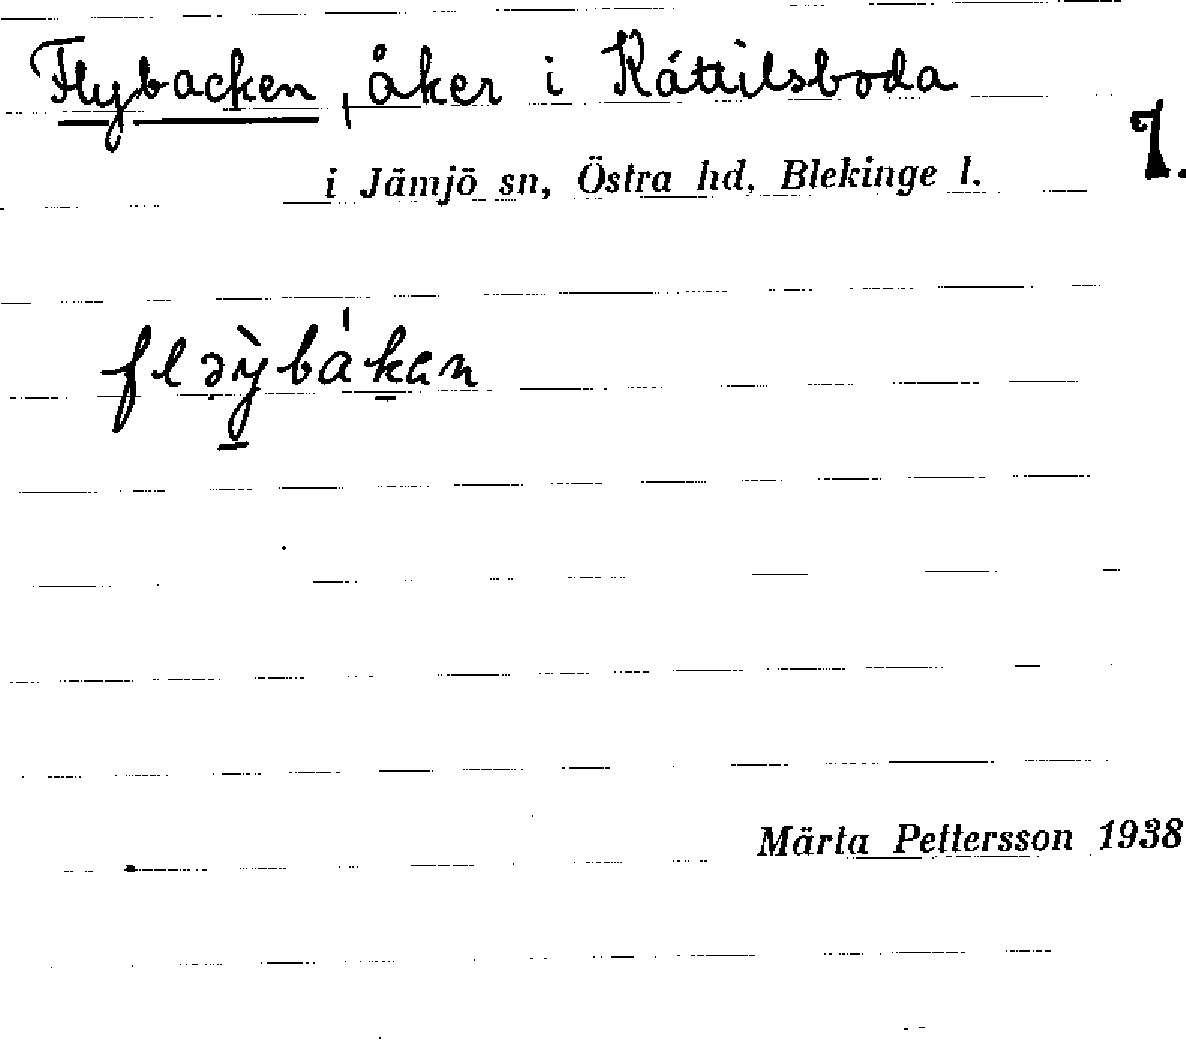 Flybacken, åker i Kättilsboda
7.
i Jämjö sn, Östra hd, Blekinge l.
fləỳ̠bák̠an
Märta Pettersson 1938